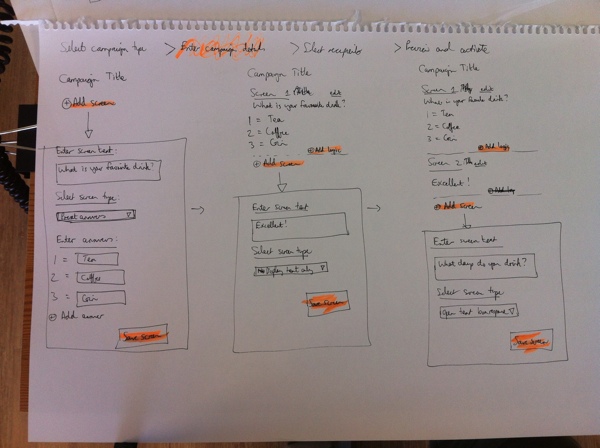 Select campaign type > Enter campaign details > Select recipients > Preview and activate
Campaign Title
+ Add screen
Enter screen text:
What is your favorite drink?
Select screen type:
Preset answers
Enter answers:
1 = Tea
2 = Coffee
3 = Coin
+ Add answer
Save screen
Campaign Title
Screen 1 edit
What is your favourite drink?
1 = Tea
2 = Coffee
3 = Coin
+ Add logic
+ Add screen
Enter screen text
Excellent!
Select screen type
Display text only
Save screen
Campaign Title
Screen 1 edit
What is your favourite drink?
1 = Tea
2 = Coffee
3 = Coin
+ Add logic
Screen 2 edit
Excellent!
+ Add screen
Enter screen text
What days do you drink?
Select screen type
Open text response
Save screen